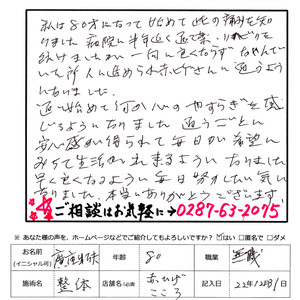 私は80才になって始めて此の痛みを知
りました 病院に半年近く通て薬、リハビリを
続けましたが一向に良くならずなやんで
いて所 人に進められ赤ひげさんに通うように
なりました。
通い始めて何か心のやすらぎを感
じるようになりました 通うごとに
安心感が得られて毎日が希望に
みちて生活が送れるようになりました
早く良くなるよう毎日努力したい気に
なりました 本当にありがとうございます
ご相談はお気軽に→0287-63-2075
※ あなた様の声を、ホームページなどでご紹介してもよろしいですか? はい □匿名で □ダメ
お名前 (イニシャル可) 年齢 80 職業 無職
施術名 整体 店舗名(必須) 赤ひげ こころ 記入日 22年12月1日